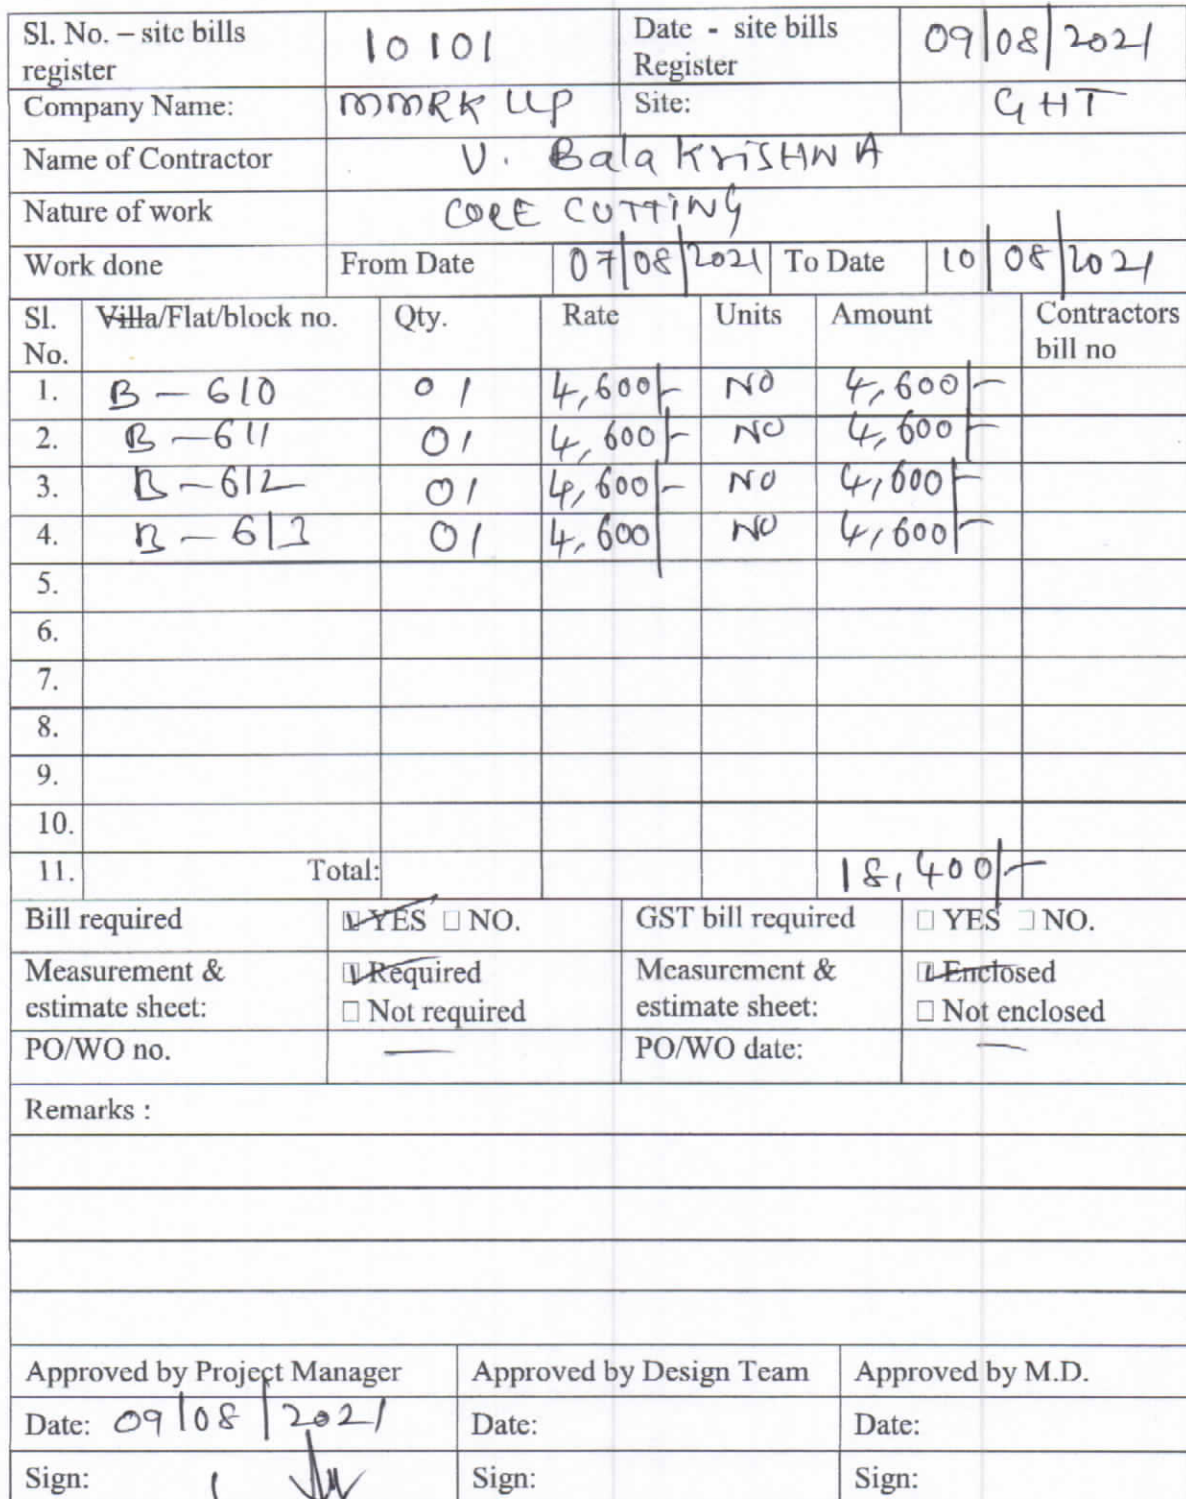 Sl. No. – site bills register 10101 Date - site bills Register 09/08/2021
Company Name: MMRK LLP Site: GHT
Name of Contractor V. Bala KriSHNA
Nature of work CORE CUTTING
Work done From Date 07/08/2021 To Date 10/08/2021
Sl. No. Villa/Flat/block no. Qty. Rate Units Amount Contractors bill no
1. B-610 01 4,600/- NO 4,600/-
2. B-611 01 4,600/- NO 4,600/-
3. B-612 01 4,600/- NO 4,600/-
4. B-613 01 4,600/ NO 4,600/-
5.
6.
7.
8.
9.
10.
11. Total: 18,400/-
Bill required ☑ YES □ NO. GST bill required □ YES □ NO.
Measurement & estimate sheet: ☑ Required □ Not required Measurement & estimate sheet: ☑ Enclosed □ Not enclosed
PO/WO no. — PO/WO date: —
Remarks :
Approved by Project Manager Approved by Design Team Approved by M.D.
Date: 09/08/2021 Date: Date:
Sign: Sign: Sign: